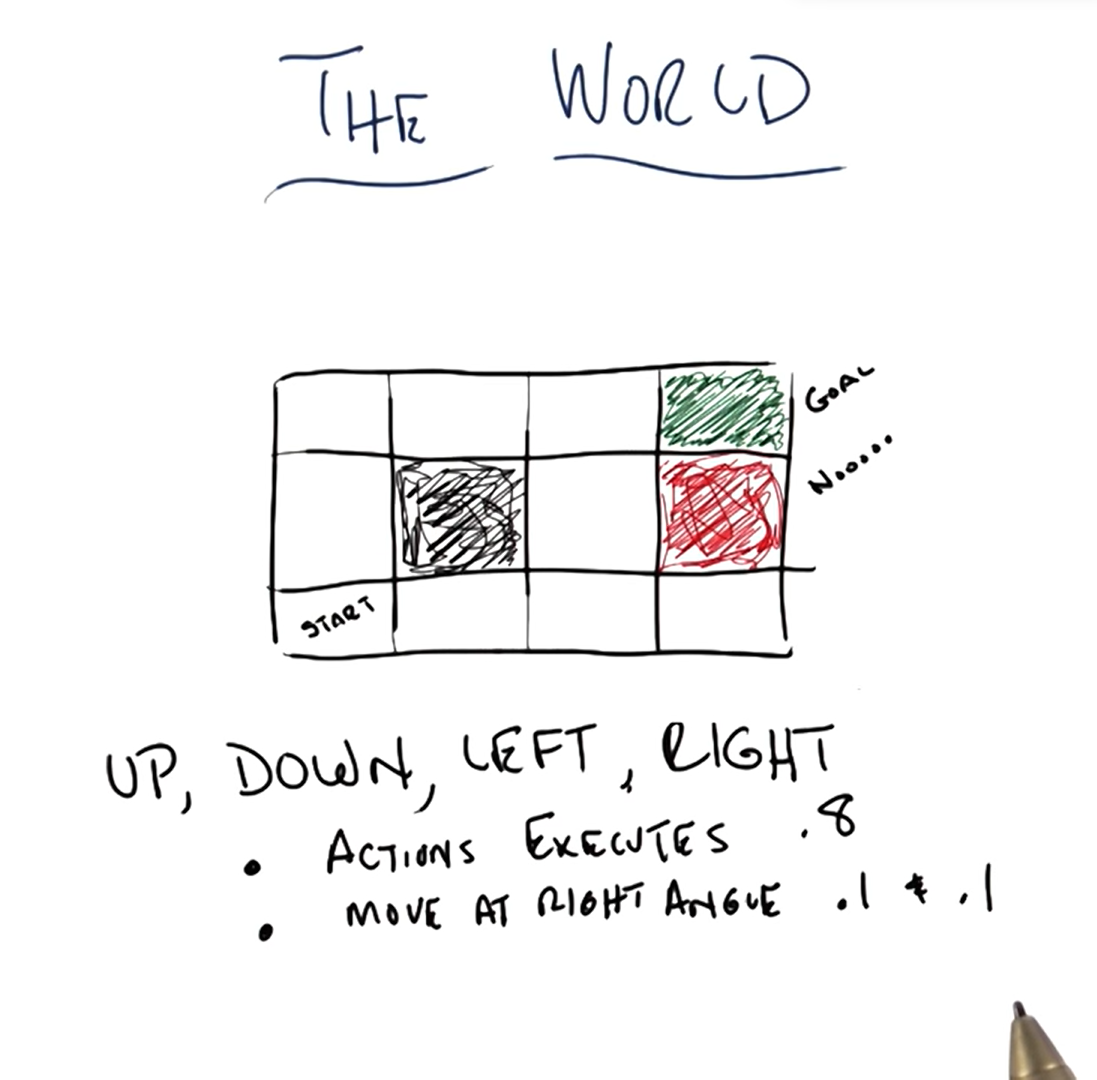 THE WORLD
GOAL
Noooo....
START
UP, DOWN, LEFT, RIGHT
• ACTIONS EXECUTES .8
• MOVE AT RIGHT ANGLE .1 & .1